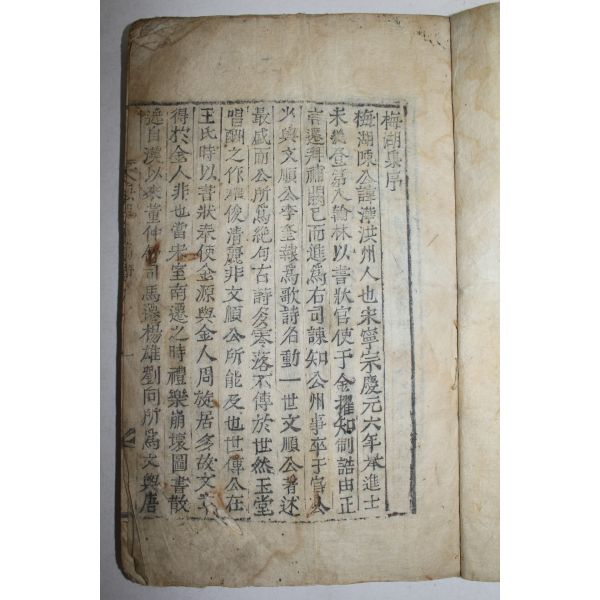 梅湖集序
梅湖陳公諱澕洪州人也宋寧宗慶元六年本進士
未幾登第入翰林以書狀官使于金擢知制誥由正
言遷拜補闕已而進爲右司諫知公州事卒于官公
少與文順公李奎報爲歌詩名動一世文順公著述
最盛而公所爲絶句古詩多零落不傳於世然玉堂
唱酬之作雄俊清麗非文順公所能及也世傳公在
王氏時以書狀奉使金源與金人周旋居多故文
得於金人非也當宋室南遷之時禮樂崩壞圖書散
逸自漢以來董仲舒司馬遷楊雄劉向所爲文與唐